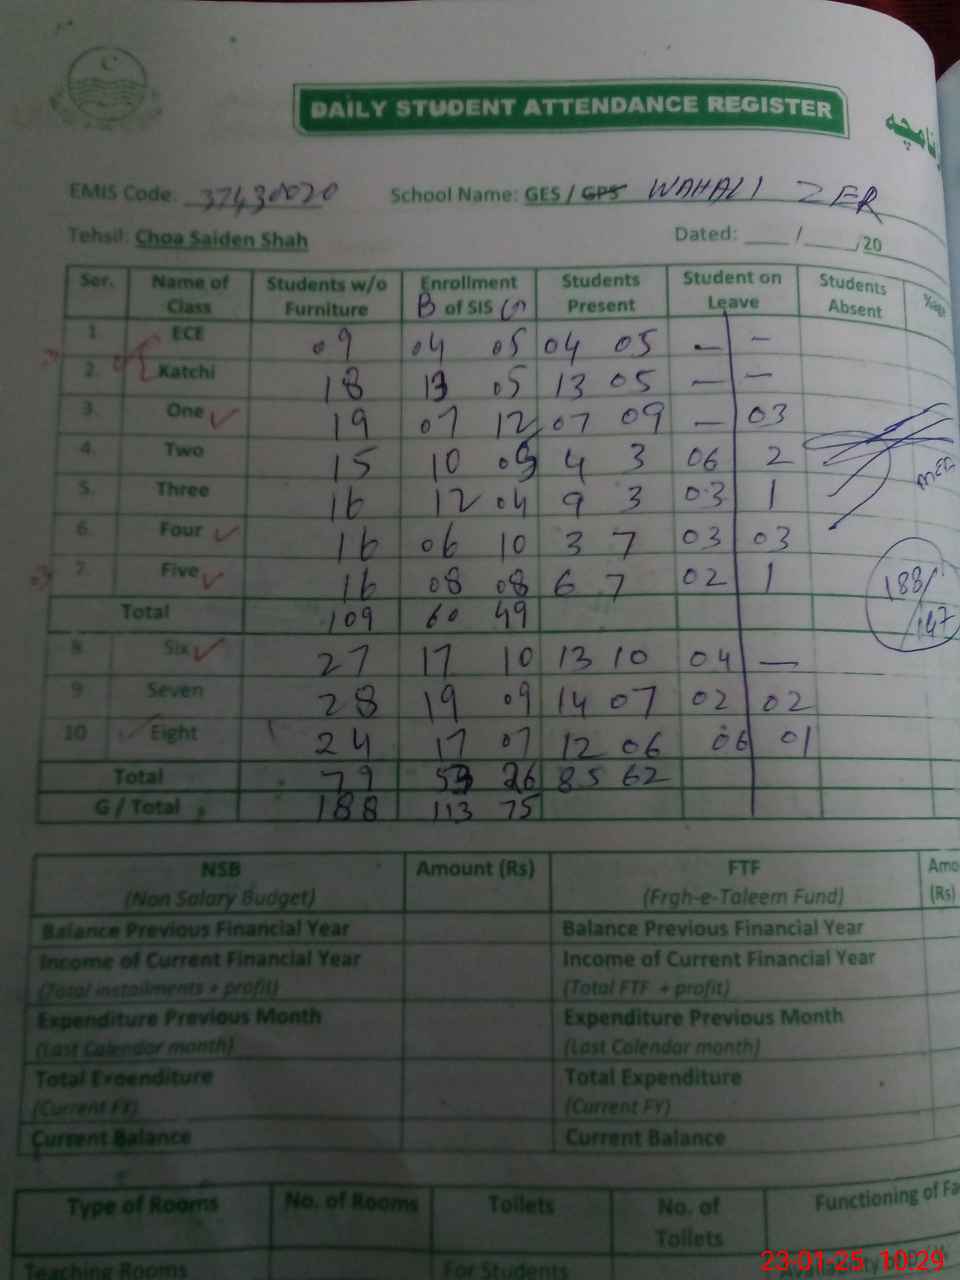 DAILY STUDENT ATTENDANCE REGISTER
EMIS Code: 37430020 School Name: GES / GPS WAHALI ZER
Tehsil: Choa Saiden Shah Dated: ___ / ___ /20
Ser. Name of Class Students w/o Furniture Enrollment of SIS B G Students Present Student on Leave Students Absent %age
1. ECE 09 04 05 04 05 — —
2. Katchi 18 13 05 13 05 — —
3. One 19 07 12 07 09 — 03
4. Two 15 10 05 4 3 06 2
5. Three 16 12 04 9 3 03 1
6. Four 16 06 10 3 7 03 03
7. Five 16 08 08 6 7 02 1
188/147
Total 109 60 49
8 Six 27 17 10 13 10 04 —
9 Seven 28 19 09 14 07 02 02
10 Eight 24 17 07 12 06 06 01
Total 79 53 26 85 62
G / Total 188 113 75
NSB Amount (Rs) FTF Amo
(Non Salary Budget) (Frgh-e-Taleem Fund) (Rs)
Balance Previous Financial Year Balance Previous Financial Year
Income of Current Financial Year Income of Current Financial Year
(Total installments + profit) (Total FTF + profit)
Expenditure Previous Month Expenditure Previous Month
(Last Calendar month) (Last Calendar month)
Total Expenditure Total Expenditure
(Current FY) (Current FY)
Current Balance Current Balance
Type of Rooms No. of Rooms Toilets No. of Toilets Functioning of Fa
Teaching Rooms For Students
23-01-25 10:29